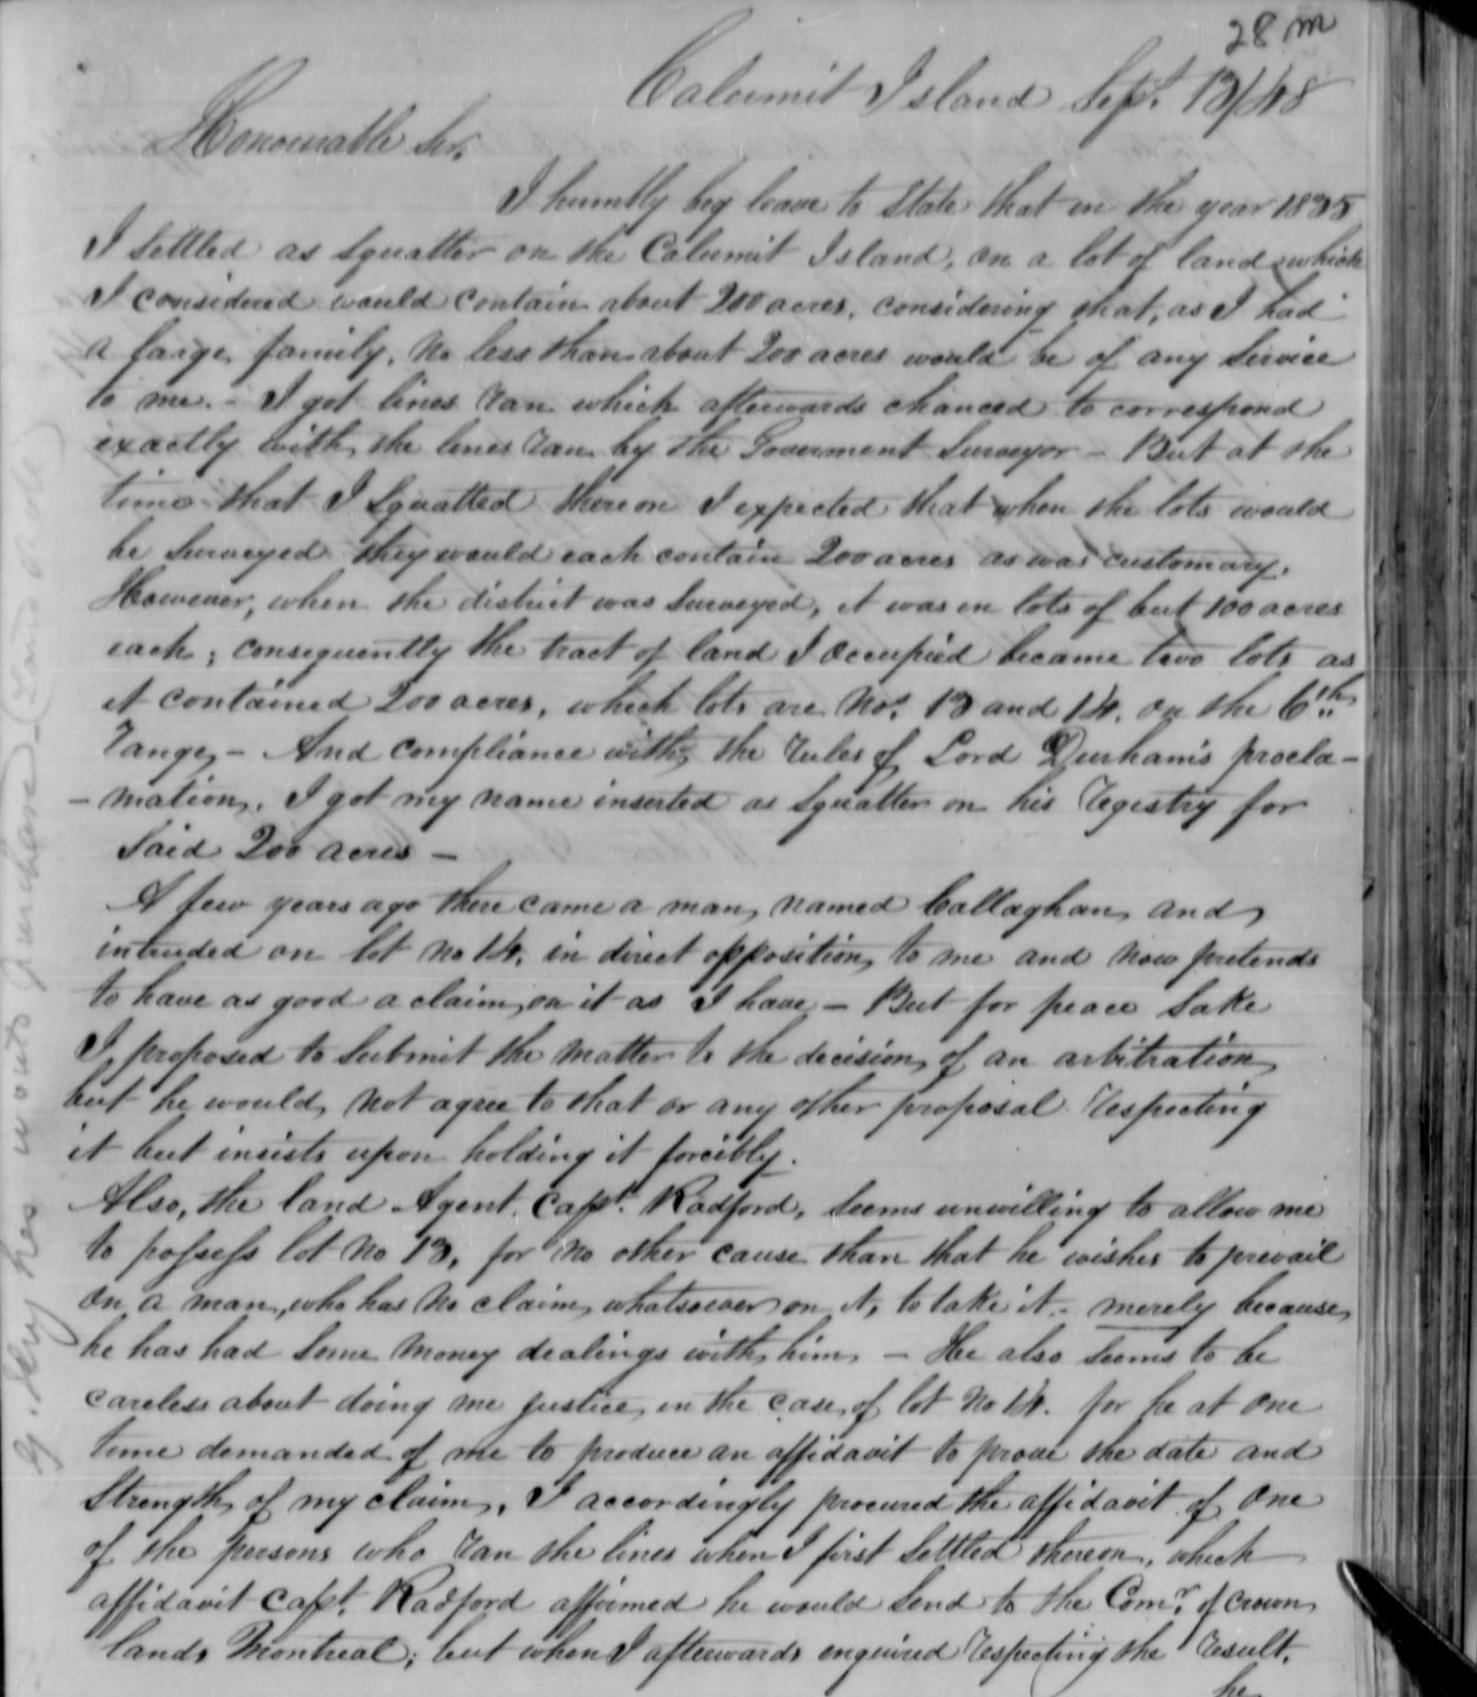 28 m
Calumit Island Sept. 13/48
Honourable Sir,
I humbly beg leave to state that in the year 1835
I settled as squatter on the Calumit Island, on a lot of land which
I considered would contain about 200 acres, considering that, as I had
a large family, no less than about 200 acres would be of any service
to me. - I got lines ran which afterwards chanced to correspond
exactly with the lines ran by the Goverment Surveyor - But at the
time that I squatted thereon I expected that when the lots would
be surveyed they would each contain 200 acres as was customary.
However, when the district was surveyed, it was in lots of but 100 acres
each; consequently the tract of land I occupied became two lots as
it contained 200 acres, which lots are Nos. 13 and 14. on the 6th
range, - And compliance with the rules of Lord Durham's procla-
-mation, I got my name inserted as squatter on his registry for
said 200 acres -
A few years ago there came a man, named Callaghan, and,
intruded on lot no 14, in direct opposition, to me and now pretends
to have as good a claim, on it as I have - But for peace sake
I, proposed to submit the matter to the decision, of an arbitration,
but he would, not agree to that or any other proposal respecting
it but insists upon holding it forcibly.
Also, the land Agent, Capt. Radford, seems unwilling to allow me
to possess lot no 13, for no other cause than that he wishes to prevail
on a man, who has no claim, whatsoever on it, to take it. - merely because,
he has had some money dealings with, him, - He also seems to be
careless about doing me justice, in the case, of lot no 14. for he at one
time demanded of me to produce an affidavit to prove the date and
strength, of my claim, I accordingly procured the affidavit of one
of the persons who ran the lines when I first settled thereon, which
affidavit Capt. Radford affirmed he would send to the Comr. of Crown,
lands, Montreal; but when I afterwards enquired respecting the result,
he
wants purchase Land